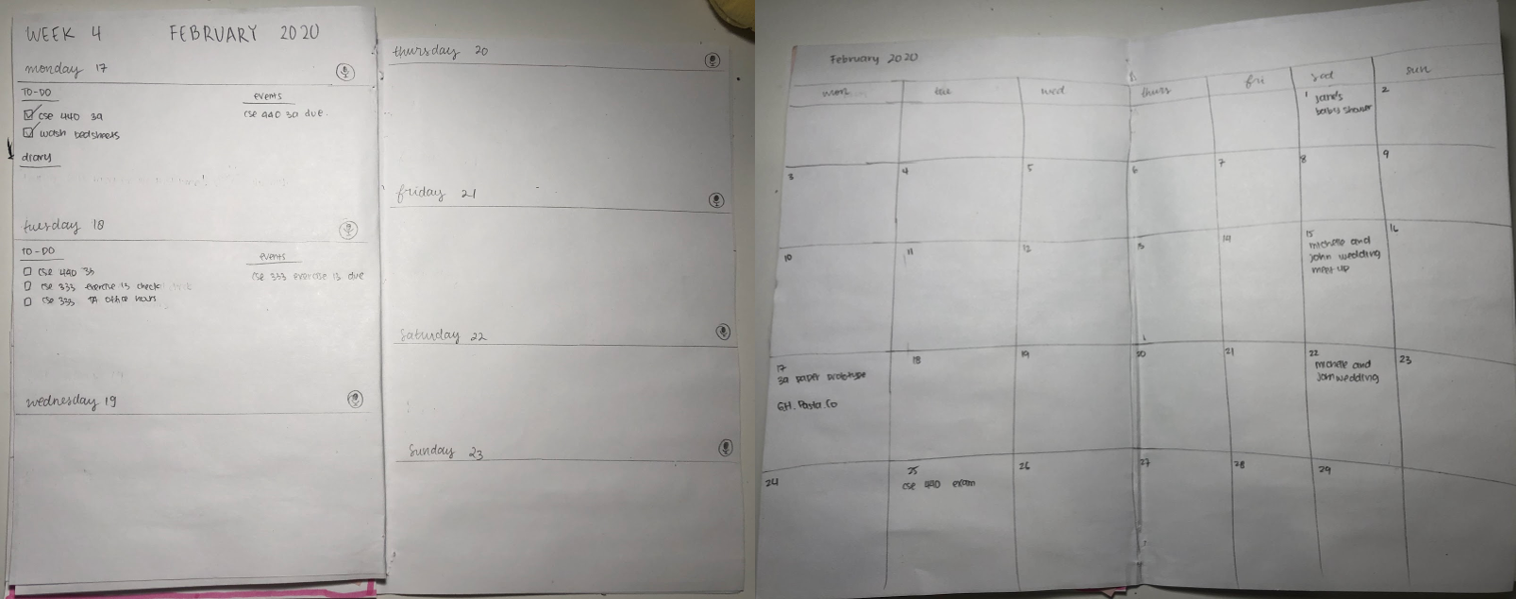 WEEK 4 FEBRUARY 2020
monday 17
TO-DO
cse 440 3a
wash bedsheets
events
cse 440 3a due.
diary
tuesday 18
TO-DO
cse 440 3b
cse 333 exercise 13 check
cse 333 TA office hours
events
cse 333 exercise 13 due
wednesday 19
thursday 20
friday 21
saturday 22
sunday 23
February 2020
mon tue wed thurs fri sat sun
1 jane's
baby shower
2
3 4 5 6 7 8 9
10 11 12 13 14 15 16
michelle and
john wedding
meet up
17 18 19 20 21 22 23
3a paper prototype
michelle and
john wedding
GH. Pasta Co
24 25 26 27 28 29
cse 440 exam